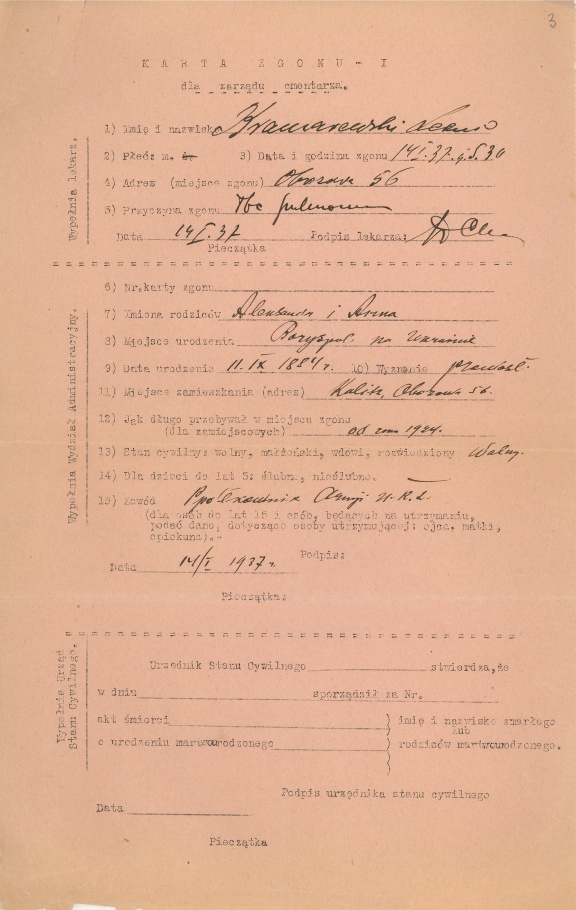 3
KARTA ZGONU - I
dla zarządu cmentarza.
Wypełnia lekarz.
1) Imię i nazwisko
2) Płeć m. ż. 3) Data i godzina zgonu 14 I. 37. g. 5.30
4) Adres (miejsce zgonu) 56
5) Przyczyna zgonu Tbc pulmonum
Data 14 I. 37 Podpis lekarza:
Pieczątka
Wypełnia Wydział Administracyjny.
6) Nr. karty zgonu
7) Imiona rodziców Aleksandr i Anna
8) Miejsce urodzenia Boryspol na Ukrainie
9) Data urodzenia 11. IX 1884 r. 10) Wyznanie prawosł.
11) Miejsce zamieszkania (adres) Kalisz, 56.
12) Jak długo przebywał w miejscu zgonu
(dla zamiejscowych) od roku 1924.
13) Stan cywilny: wolny, małżeński, wdowi, rozwiedziony Wolny.
14) Dla dzieci do lat 5: ślubne, nieślubne.
15) Zawód Armji U.R.L.
(dla osób do lat 15 i osób, będących na utrzymaniu,
podać dane, dotyczące osoby utrzymującej: ojca, matki,
opiekuna).-
Data 14/I 1937 r. Podpis:
Pieczątka:
Wypełnia Urząd
Stanu Cywilnego.
Urzędnik Stanu Cywilnego stwierdza, że
w dniu sporządził za Nr.
akt śmierci imię i nazwisko zmarłego
lub
o urodzeniu martwourodzonego rodziców martwourodzonego.
Podpis urzędnika stanu cywilnego
Data
Pieczątka